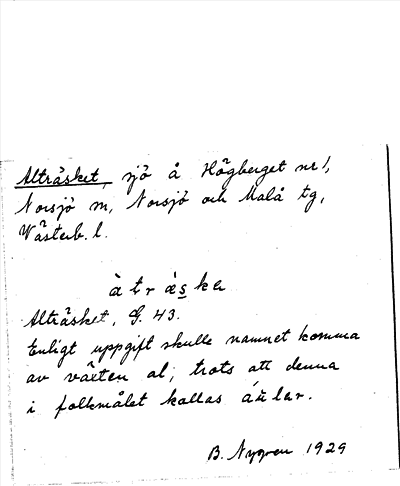 Alträsket, sjö å Högberget nr 1,
Norsjö sn, Norsjö och Malå tg,
Västerb. l.
àtræske
Alträsket, G. 43.
Enligt uppgift skulle namnet komma
av växten al, trots att denna
i folkmålet kallas
B. Nygren 1929